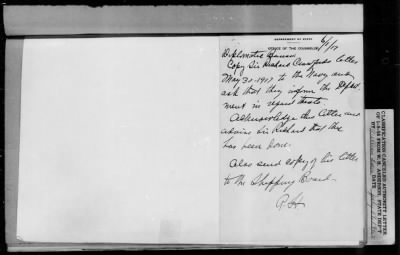 DEPARTMENT OF STATE
OFFICE OF THE COUNSELOR
6/1/17
Diplomatic Bureau
Copy Sir Richard Crawfords letter
May 30-1917 to the Navy and
ask that they inform the Depart
ment in regard thereto.
Acknowledge this letter and
advise Sir Richard that this
has been done.
Also send copy of his letter
to the Shipping Board.
CLASSIFICATION CANCELLED AUTHORITY LETTER
OF 1-8-58 FROM W. H. ANDERSON, STATE DEP'T
DATE